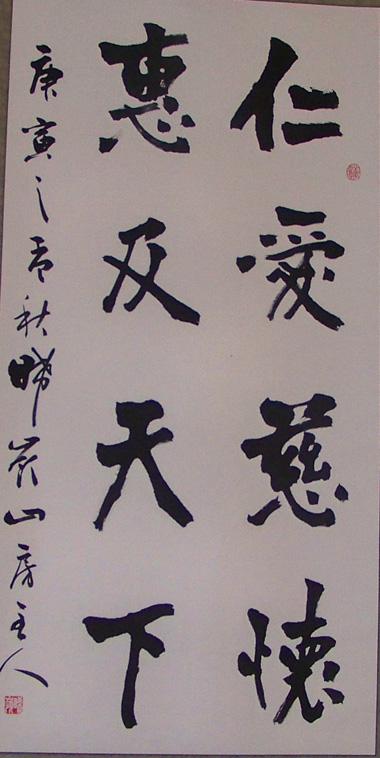 仁愛慈懷
惠及天下
庚寅之秋晞山房主人